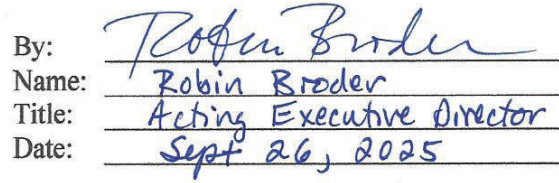 By: Robin Broder
Name: Robin Broder
Title: Acting Executive Director
Date: Sept 26, 2025